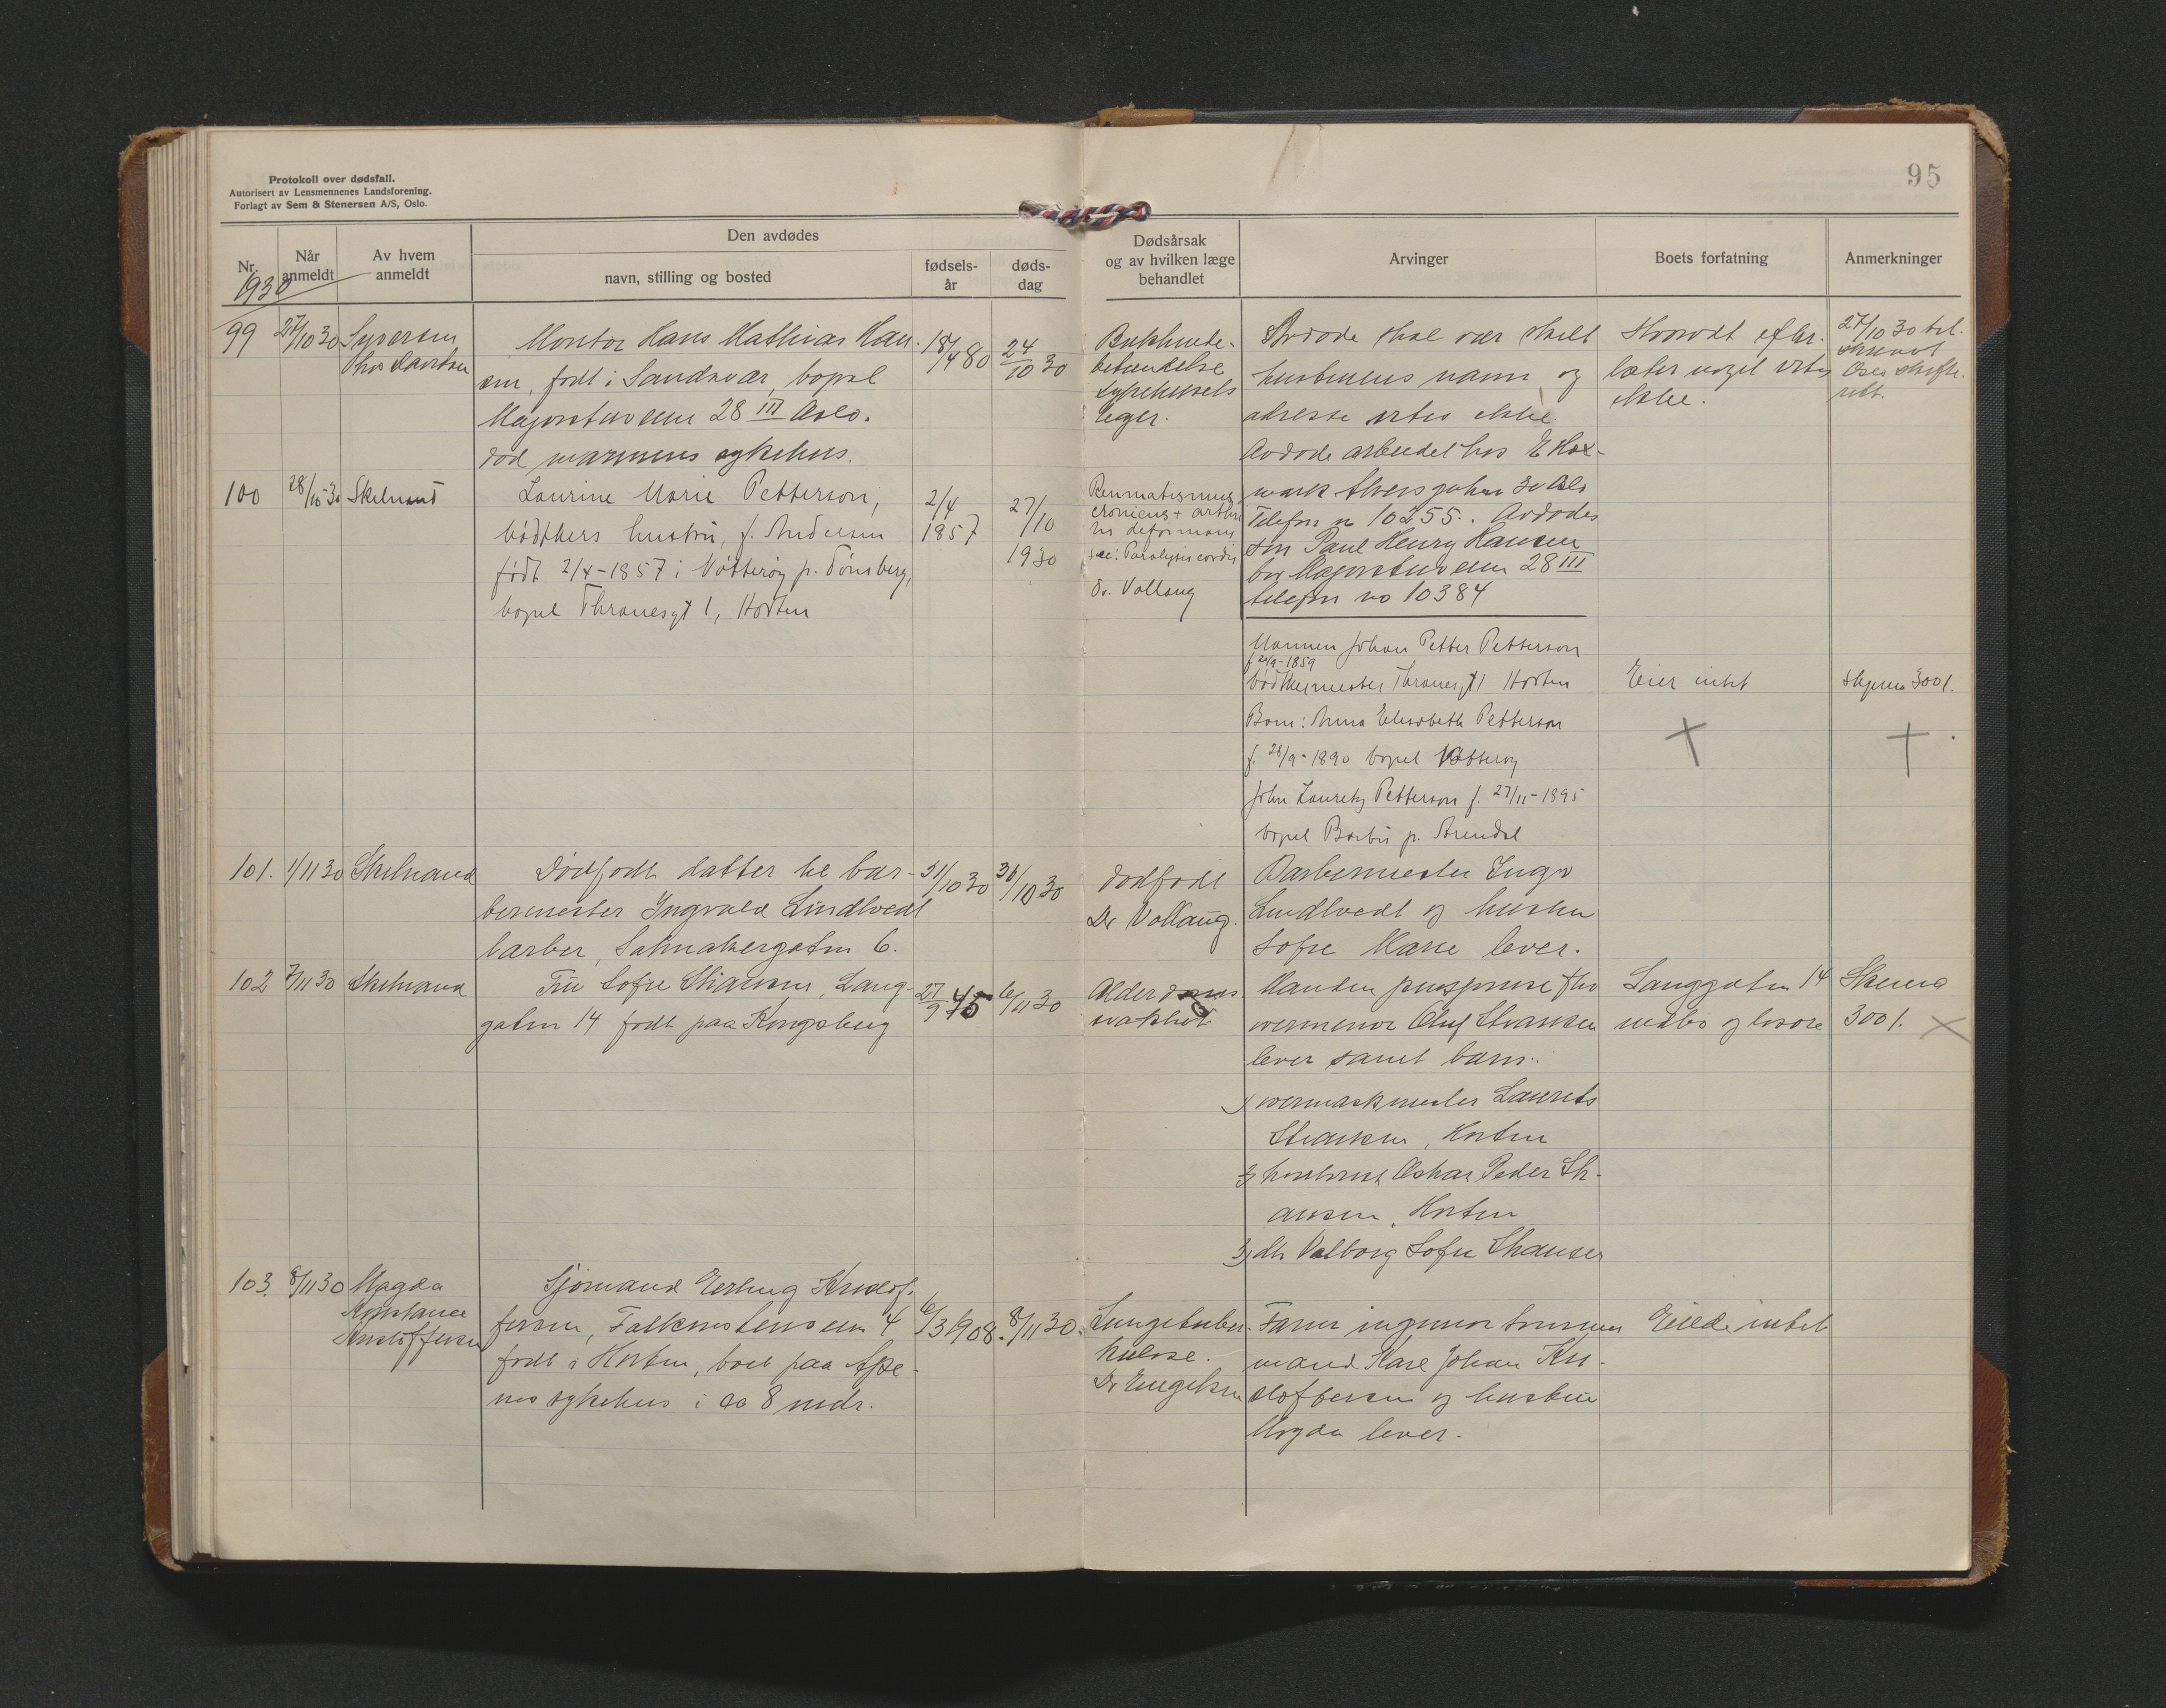 Protokoll over dødsfall.
Autorisert av Lensmennenes Landsforening.
Forlagt av Sem & Stenersen A/S, Oslo.
95
Nr.
Når anmeldt
Av hvem anmeldt
Den avdødes
navn, stilling og bosted
fødsels-år
døds-dag
Dødsårsak
og av hvilken læge
behandlet
Arvinger
Boets forfatning
Anmerkninger
1930
99 27/10 30 Syversen
hos
Montør Hans Mathias Han-
sen, født i Sandsvær, bopæl
28 III Oslo.
død marinens sykehus.
18/4 80
24/10 30
Bukhinde-
betændelse
Sykehusets
læger.
Avdøde skal vær skilt
hustruens navn og
adresse vites ikke.
Avdøde arbeidet hos E
30 Oslo
Telefon no 10255. Avdødes
søn Paul Henry Hansen
bor 28 III
telefon no 10384
Hvorvidt efter-
later noget vites
ikke.
27/10 30
Oslo skifte-
rett.
100 28/10-30 Skelnand
Laurine Marie Petterson,
bødtkers hustru, f. Andersen
født 2/4-1857 i Nøtterøy p. Tønsberg,
bopel Thranesgt 1, Horten
2/4
1857
27/10
1930
Reumatismus
cronicus + arthri
tis deformans
Paralysis cordis
Dr. Vollaug
Mannen Johan Petter Petterson
bødtkermester Thranesgt 1 Horten
Barn: Anna Elisabeth Petterson
f. 28/9-1890 bopel Nøtterøy
John Lauritz Petterson f. 27/11-1895
bopel Barbu p. Arendal
Eier intet
Skjema 3001.
101. 1/11 30 Skelnand
Dødfødt datter til bar-
bermester Ingvald Lindtvedt
barber, 6.
31/10 30
31/10 30
dødfødt
Dr Vollaug.
Barbermester Ingv
Lindtvedt og hustru
Sofie Marie lever.
102 7/11 30 Skelnand
Fru Sofie Lang-
gaten 14 født paa Kongsberg
27/9 45
6/11 30
Alderdoms
svakhet
Manden
Oluf
lever samt barn:
1) Laurits
Horten
2) Oskar Peder
ansen, Horten
3) Valborg Sofie
Langgaten 14
indbo og løsøre
Skema
3001.
103. 8/11 30 Magda
Konstance
Kristoffersen
Sjømand Erling Kristof-
fersen, 4
født i Horten, boet paa
nes sykehus i ca 8 mdr.
6/3 1908.
8/11 30.
Lungetuber-
kulose.
Dr Engelsen
Faren
mand Karl Johan Kri-
stoffersen og hustru
Magda lever.
Eiede intet